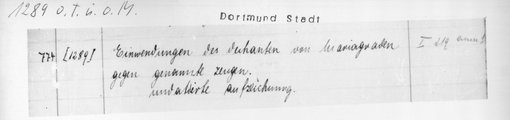 1289 o.T. u. o.M.
Dortmund Stadt
774 [1289] Einwendungen des dechanten von Mariagraden I 219 anm 1
gegen genannte zeugen.
undatierte aufzeichnung.